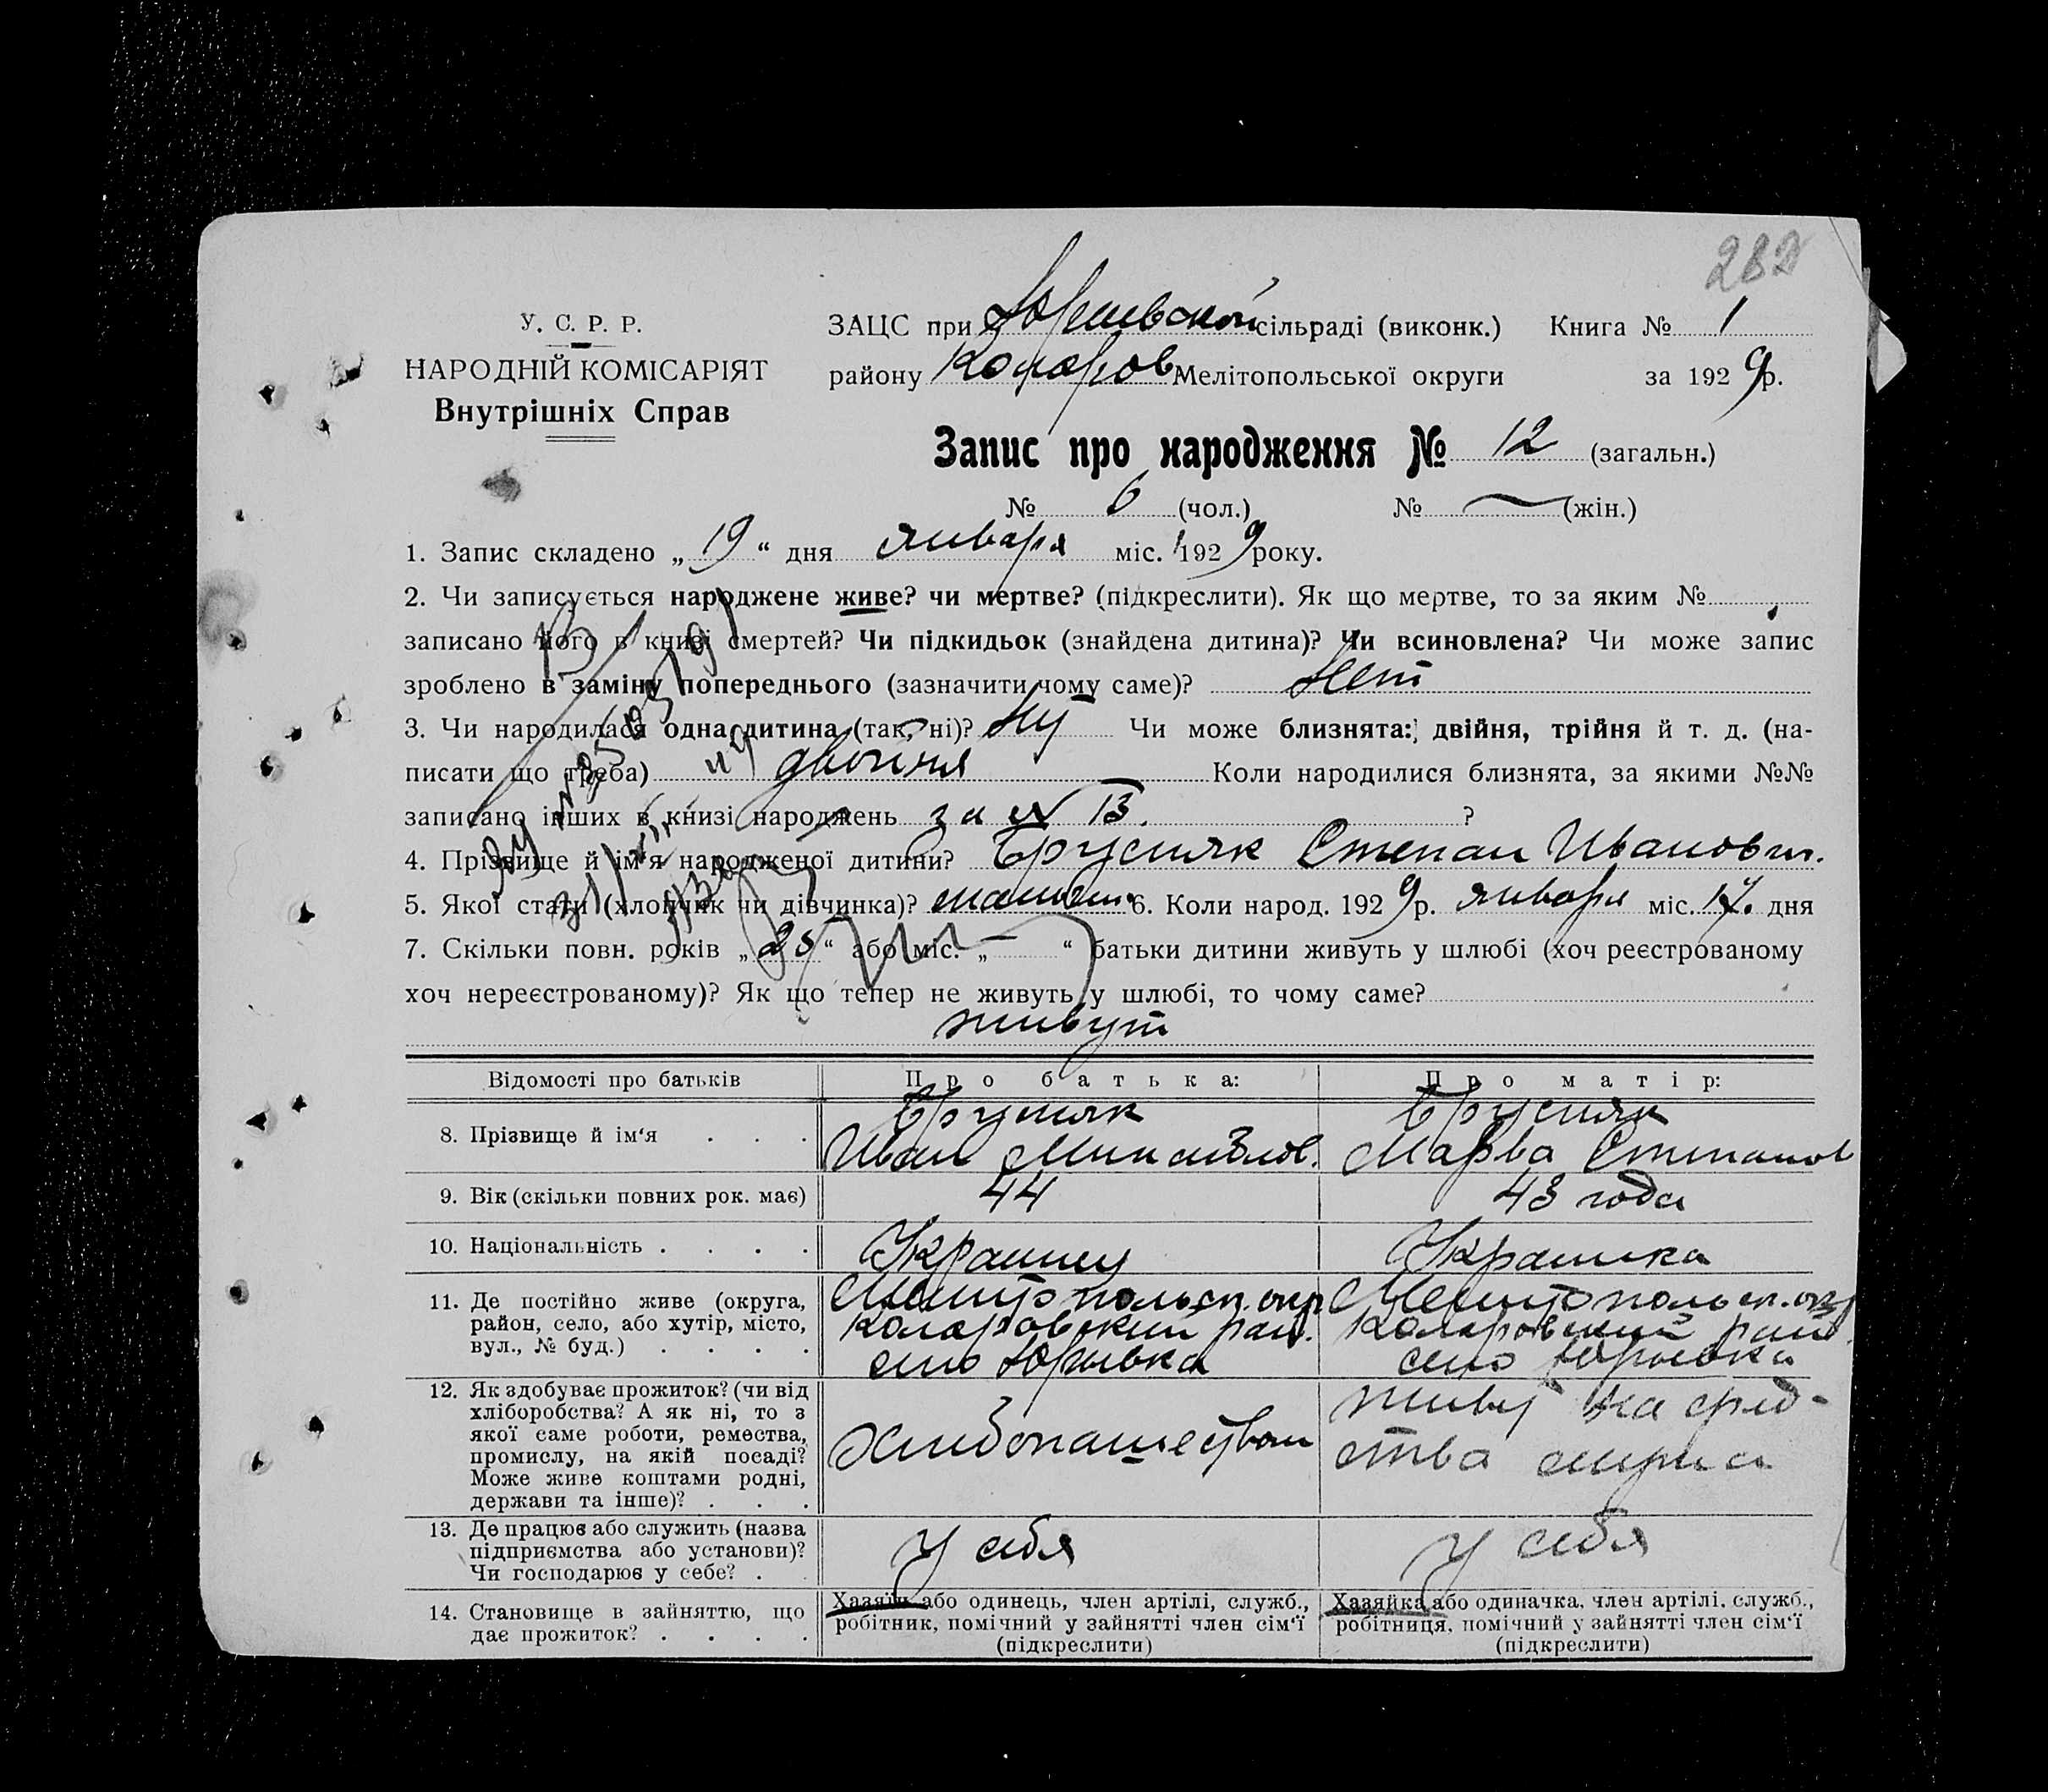 282
У. С. Р. Р.
НАРОДНІЙ КОМІСАРІЯТ
Внутрішніх Справ
ЗАЦС при Юрьевской сільраді (виконк.) Книга № 1
району Коларов Мелітопольської округи за 1929 р.
Запис про народження № 12 (загальн.)
№ 6 (чол.) № — (жін.)
1. Запис складено „19“ дня января міс. 1929 року.
2. Чи записується народжене живе? чи мертве? (підкреслити). Як що мертве, то за яким №
записано його в книзі смертей? Чи підкидьок (знайдена дитина)? Чи всиновлена? Чи може запис
зроблено в заміну попереднього (зазначити чому саме)? Нет
3. Чи народилася одна дитина (так, ні)? Чи може близнята: двійня, трійня й т. д. (на-
писати що треба) двойня Коли народилися близнята, за якими №№
записано інших в книзі народжень за № 13. ?
4. Прізвище й ім'я народженої дитини? Брусняк Степан Иванович.
5. Якої статі (хлопчик чи дівчинка)? 6. Коли народ. 1929 р. января міс. 17. дня
7. Скільки повн. років „25“ або міс. „—“ батьки дитини живуть у шлюбі (хоч реєстрованому
хоч нереєстрованому)? Як що тепер не живуть у шлюбі, то чому саме?
живут
Відомості про батьків Про батька: Про матір:
8. Прізвище й ім'я . . . Брусняк Иван Михайлов. Брусняк Марва Степанов
9. Вік (скільки повних рок. має) 44 43 года
10. Національність . . . . Украинец Украинка
11. Де постійно живе (округа, Мелитопольск. окр Мелитопольск. окр
район, село, або хутір, місто, Коларовский рай. Коларовский рай.
вул., № буд.) . . . . село Юрьевка село Юрьевка
12. Як здобуває прожиток? (чи від
хліборобства? А як ні, то з живу на сред-
якої саме роботи, ремества, Хлебопашеством
промислу, на якій посаді? ства мужа
Може живе коштами родні,
держави та інше)? . . .
13. Де працює або служить (назва
підприємства або установи)? у себя у себя
Чи господарює у себе? .
14. Становище в зайняттю, що дає прожиток? . . . .
Хазяїн або одинець, член артілі, служб.,
робітник, помічний у зайнятті член сім'ї
(підкреслити)
Хазяйка або одиначка, член артілі, служб.,
робітниця, помічний у зайнятті член сім'ї
(підкреслити)